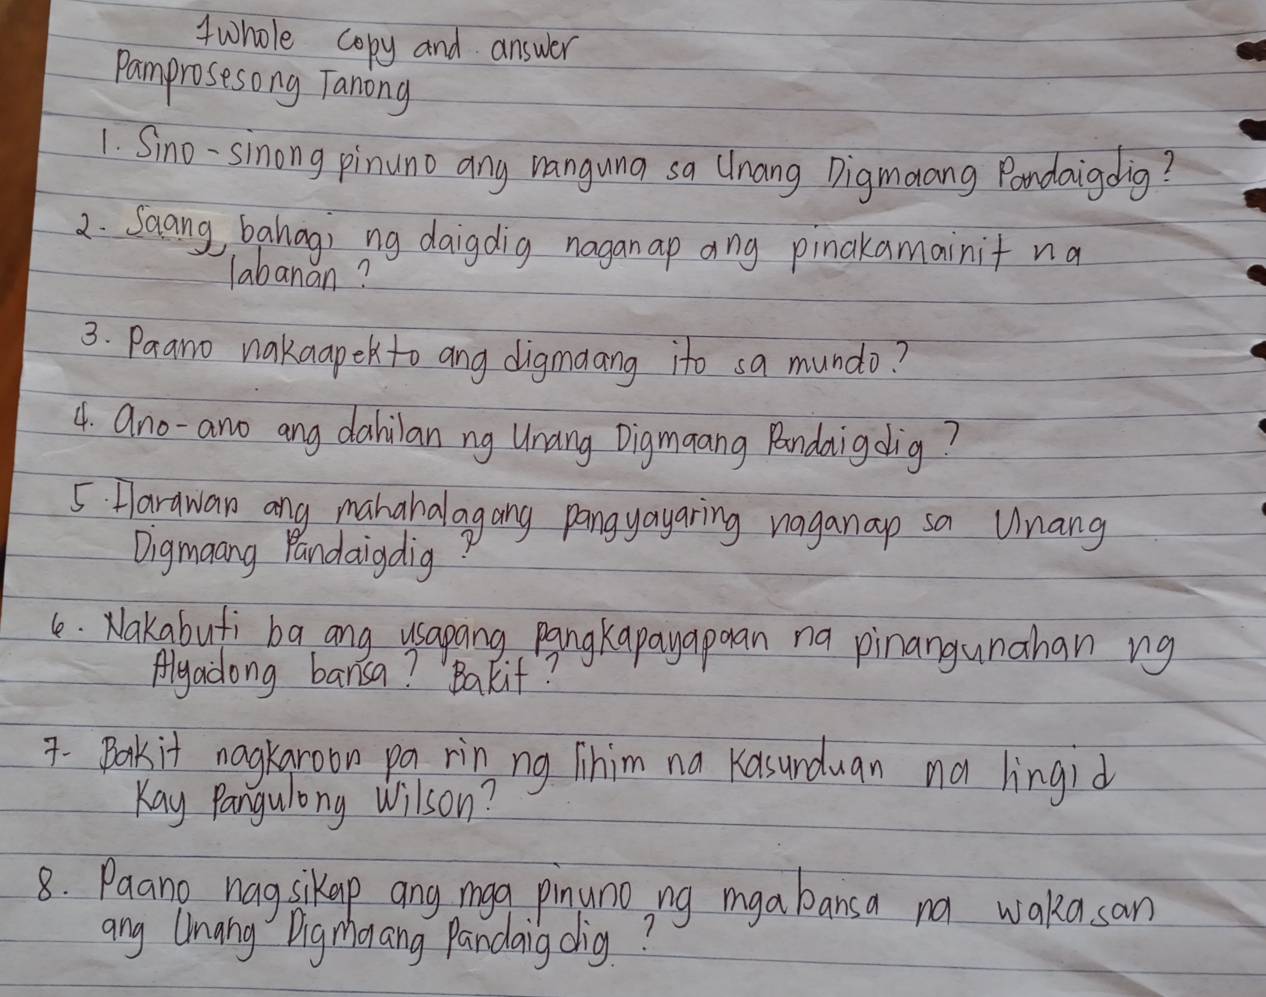 1whole copy and answer
Pamprosesong Tanong
1. Sino-sinong pinuno ang nanguna sa Unang Digmaang Pandaigdig?
2. Saang, bahagi ng daigdig naganap ang pinakamainit na
labanan?
3. Paano nakaapekto ang digmaang ito sa mundo?
4. Ano-ano ang dahilan ng Unang Digmaang Pandaigdig?
5. Ilarawan ang mahahalagang pangyayaring naganap sa Unang
Digmaang Pandaigdig?
6. Nakabuti ba ang usapang pangkapayapaan na pinangunahan ng
Alyadong bansa? Bakit?
7- Bakit nagkaroon pa rin ng lihim na kasunduan na lingid
kay Pangulong Wilson?
8. Paano nagsikap ang mga pinuno ng mga bansa na wakasan
ang Unang Digmaang Pandaigdig?